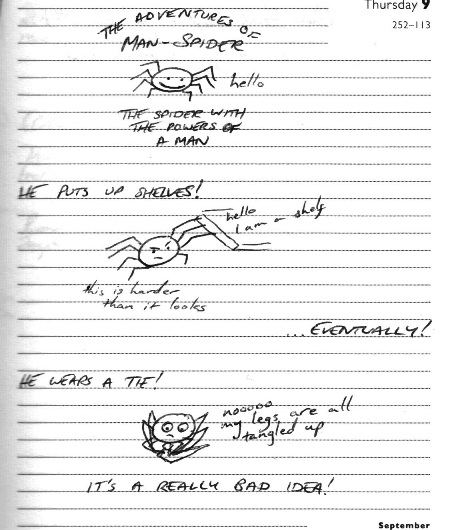 Thursday 9
252–113
THE ADVENTURES OF
MAN-SPIDER
hello
THE SPIDER WITH
THE POWERS OF
A MAN
HE PUTS UP SHELVES!
hello
I am a shelf
this is harder
than it looks
...EVENTUALLY!
HE WEARS A TIE!
nooooo
my legs are all
tangled up
IT'S A REALLY BAD IDEA!
September